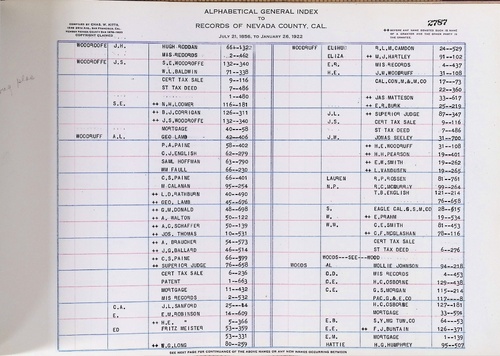 ALPHABETICAL GENERAL INDEX
TO
RECORDS OF NEVADA COUNTY, CAL.
JULY 21, 1856, TO JANUARY 26, 1922
2787
COPYRIGHT CLAIMED
WOODROFFE J.H. HUGH RODDAN 66--132
MIS RECORDS 2--462
WOODROFFE J.S. S.E. WOODROFFE 132--340
W.L. BALDWIN 71--338
CERT TAX SALE 9--116
ST TAX DEED 7--486
1--480
S.E. ++ N.M. LOOMER 116--181
++ B.J. CORRIGAN 126--311
++ J.S. WOODROFFE 132--340
MORTGAGE 40---58
WOODRUFF A.L. GEO LAMB 42--406
P.A. PAINE 58--402
C.J. ENGLISH 62--279
SAML HOFFMAN 63--790
WM FAULL 66--230
C.S. PAINE 66--401
M CALANAN 95--254
++ L.D. RATHBURN 44--490
++ GEO. LAMB 45--696
++ G.M. DONALD 48--698
++ A. WALTON 50--122
++ A.C. SCHAFFER 50--139
++ JOS. THOMAS 10--531
++ A. BRAUCHER 54--573
++ J.G. BALLARD 64--514
++ C.S. PAINE 66--399
++ SUPERIOR JUDGE 76--658
CERT TAX SALE 6--236
PATENT 1--663
MORTGAGE 11--432
MIS RECORDS 2--532
C.A. J.L. SANFORD 25---44
E. E.W. ROBINSON 14--609
++ H.E. 5--366
ED FRITZ MEISTER 53--359
53--331
++ W.G. LONG 80--259
WOODRUFF ELIHU R.L.M. CAMDON 24--529
ELIZA ++ M.J. HARTLEY 91--102
E.R. MIS RECORDS 4--437
H.E. J.W. WOODRUFF 31--108
CAL.CON.M.& M.CO 17---73
22--360
++ JAS MATTESON 33--617
++ E.R. BURK 25--219
J.L. ++ SUPERIOR JUDGE 87--347
J.S. CERT TAX SALE 9--116
ST TAX DEED 7--486
J.W. JONAS SEELEY 31--700
++ H.E. WOODRUFF 31--108
++ H.H. PEARSON 19--401
++ E.W. SMITH 19--262
++ L. VANDUSEN 19--265
LAUREN R.P. ROSSEN 81--761
N.P. R.C. MCMURRLY 99--264
T.B. ENGLISH 121--214
76--658
S. EAGLE CAL.G.S.M.CO 28--615
W. ++ E. PRAHM 19--534
W.W. C.E. SMITH 81--453
++ C.F. MCGLASHAN 78--116
CERT TAX SALE
ST TAX DEED 6--276
WOODS---SEE---WOOD
WOODS AL MOLLIE JOHNSON 94--218
C.D. MIS RECORDS 4--453
C.E. H.C. OSBORNE 129--438
C.E. G.S. MORGAN 115--214
PAC.G.& E.CO 117---8
H.C. OSBORNE 127--181
MORTGAGE 33--594
E.B. S.Y. MG TUN.CO 64---53
E.E. ++ F.J. BUNTAIN 126--371
E.M. MORTGAGE 1--139
HATTIE H.G. HUMPHREY 95--507
SEE NEXT PAGE FOR CONTINUANCE OF THE ABOVE NAMES OR ANY NEW NAMES OCCURRING BETWEEN